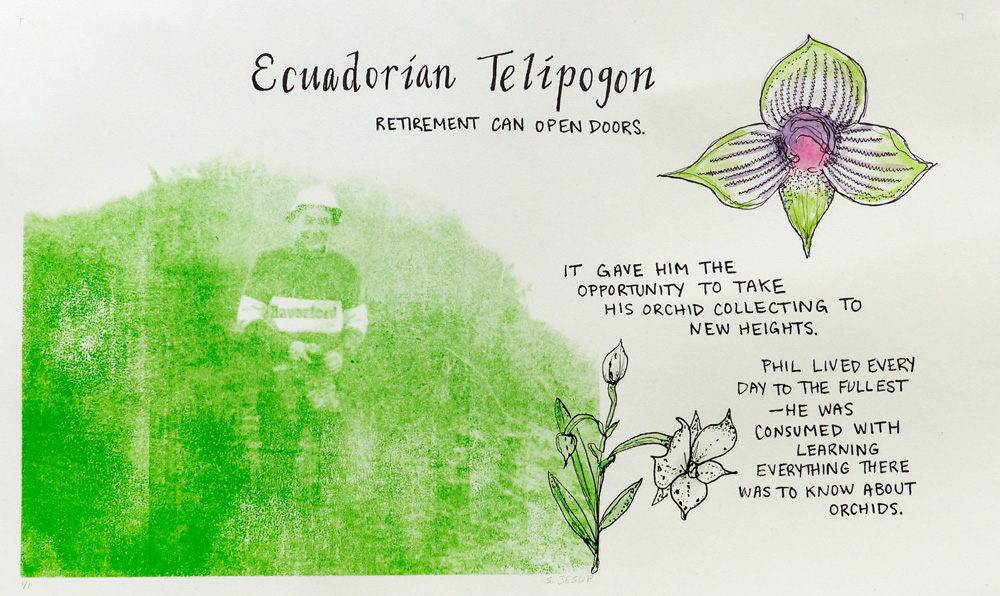 Ecuadorian Telipogon
RETIREMENT CAN OPEN DOORS.
IT GAVE HIM THE
OPPORTUNITY TO TAKE
HIS ORCHID COLLECTING TO
NEW HEIGHTS.
Haverford
PHIL LIVED EVERY
DAY TO THE FULLEST
—HE WAS
CONSUMED WITH
LEARNING
EVERYTHING THERE
WAS TO KNOW ABOUT
ORCHIDS.
1/1
S. JESUP